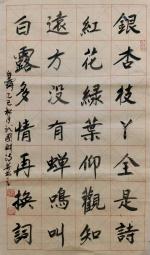 銀杏枝丫全是詩
紅花綠葉仰觀知
遠方没有蟬鳴叫
白露多情再換詞